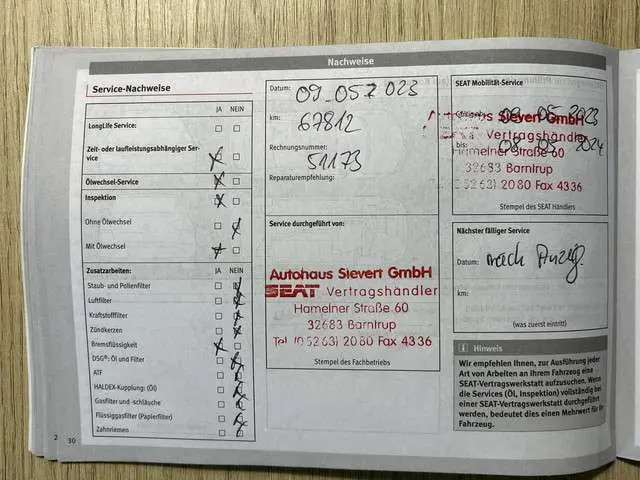 Nachweise
Service-Nachweise
JA NEIN
LongLife Service:
Zeit- oder laufleistungsabhängiger Ser-
vice
Ölwechsel-Service
Inspektion
Ohne Ölwechsel
Mit Ölwechsel
Zusatzarbeiten: JA NEIN
Staub- und Pollenfilter
Luftfilter
Kraftstofffilter
Zündkerzen
Bremsflüssigkeit
DSG®: Öl und Filter
ATF
HALDEX-Kupplung: (Öl)
Gasfilter und -schläuche
Flüssiggasfilter (Papierfilter)
Zahnriemen
Datum: 09.05.2023
km: 67812
Rechnungsnummer:
51173
Reparaturempfehlung:
Service durchgeführt von:
Autohaus Sievert GmbH
SEAT Vertragshändler
Hamelner Straße 60
32683 Barntrup
Tel. (0 52 63) 20 80 Fax 4 3 36
Stempel des Fachbetriebs
SEAT Mobilität-Service
09.05.2023
Autohaus Sievert GmbH
SEAT Vertragshändler
bis: 08.05.2024
Hamelner Straße 60
32683 Barntrup
Tel. (0 52 63) 20 80 Fax 4 3 36
Stempel des SEAT Händlers
Nächster fälliger Service
Datum: nach Anzeig.
km:
(was zuerst eintritt)
i Hinweis
Wir empfehlen Ihnen, zur Ausführung jeder
Art von Arbeiten an Ihrem Fahrzeug eine
SEAT-Vertragswerkstatt aufzusuchen. Wenn
die Services (Öl, Inspektion) vollständig bei
einer SEAT-Vertragswerkstatt durchgeführt
werden, bedeutet dies einen Mehrwert für Ihr
Fahrzeug.
2 30